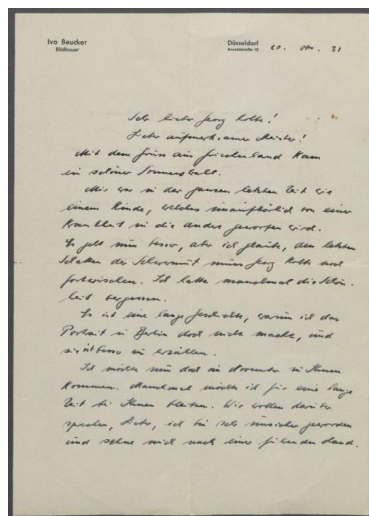 Ivo Beucker
Bildhauer
Düsseldorf
20. Okt. 31
Sehr lieber Georg Kolbe!
Lieber aufmerksamer Meister!
Mit dem Gruss aus Griechenland kam
ein schöner Sonnenstrahl.
Mir war in der ganzen letzten Zeit wie
einem Kinde, welches unaufhörlich von einer
Krankheit in die andere geworfen wird.
Es geht nun besser, aber ich glaube, den letzten
der Schwermut muss Georg Kolbe noch
fortwischen. Ich hatte manchmal die Schön-
heit vergessen.
Es ist eine lange Geschichte, warum ich das
Portrait in Berlin doch nicht mache, und
sie ist besser zu erzählen.
Ich möchte nun doch im November zu Ihnen
kommen. Manchmal möchte ich für eine lange
Zeit bei Ihnen bleiben. Wir wollen darüber
sprechen, Lieber, ich bin sehr unsicher geworden
und sehne mich nach einer führenden Hand.